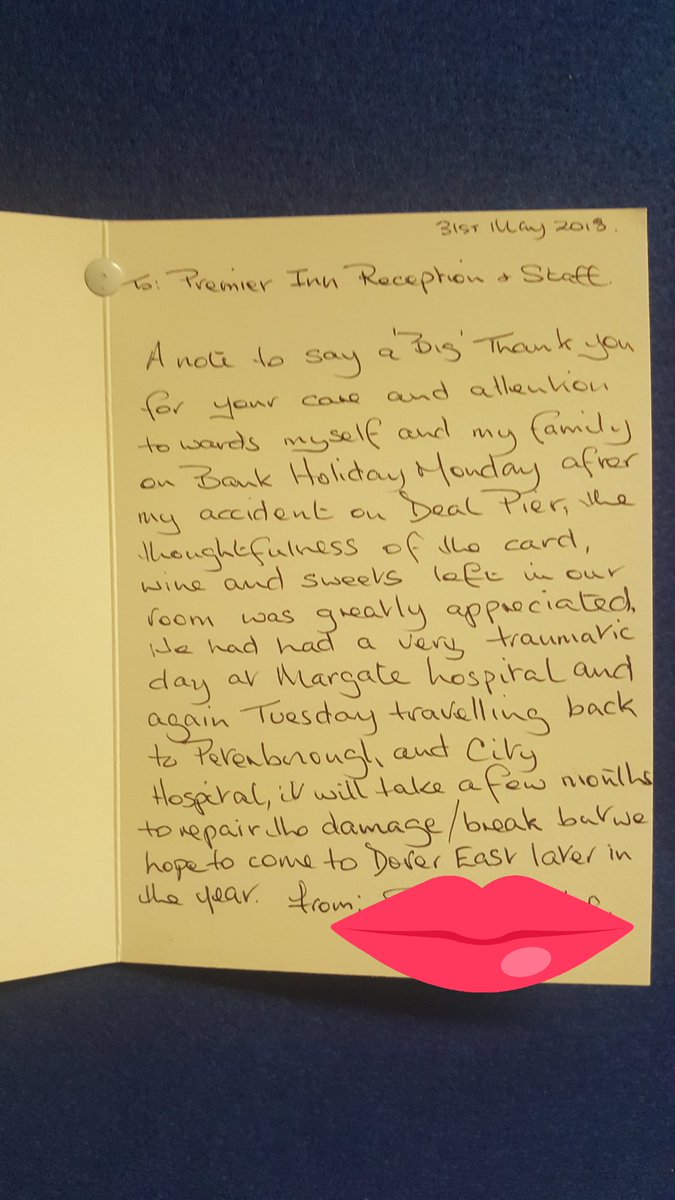 31st May 2018.
To: Premier Inn Reception & Staff.
A note to say a 'Big' Thank you
for your care and attention
towards myself and my family
on Bank Holiday Monday after
my accident on Deal Pier, the
thoughtfulness of the card,
wine and sweets left in our
room was greatly appreciated,
We had had a very traumatic
day at Margate hospital and
again Tuesday travelling back
to Peterborough, and City
Hospital, it will take a few months
to repair the damage/break but we
hope to come to Dover East later in
the year. from: